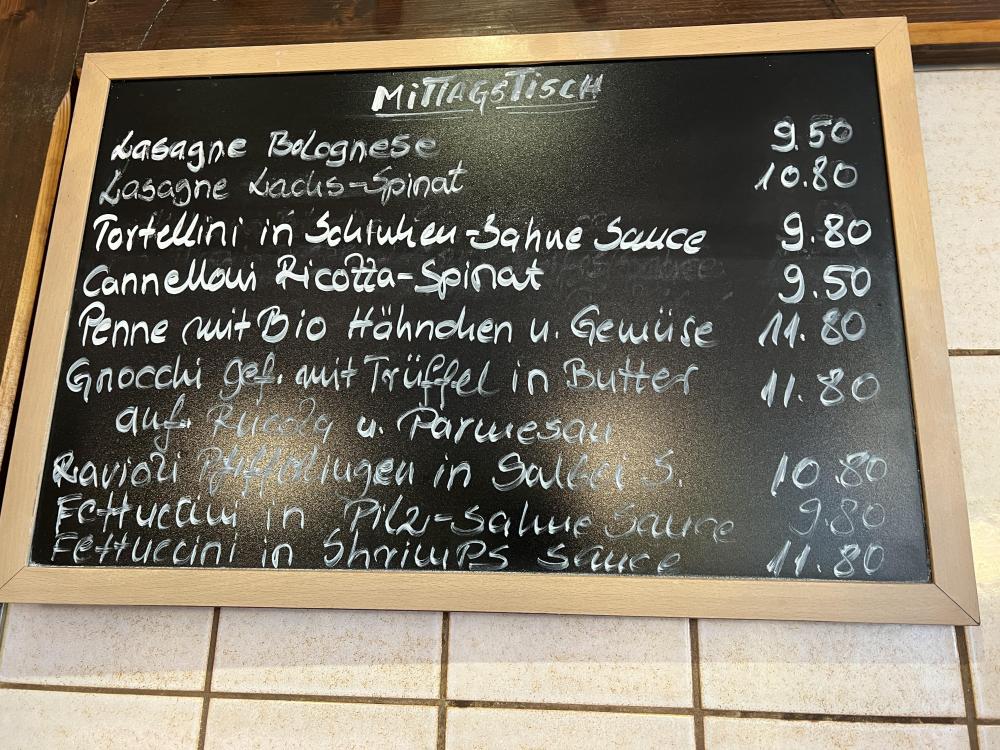 MITTAGSTISCH
Lasagne Bolognese 9.50
Lasagne Lachs-Spinat 10.80
Tortellini in Schinken-Sahne Sauce 9.80
Cannelloni Ricotta-Spinat 9.50
Penne mit Bio Hähnchen u. Gemüse 11.80
Gnocchi gef. mit Trüffel in Butter 11.80
auf Rucola u. Parmesan
Ravioli Pfifferlingen in Salbei S. 10.80
Fettuccini in Pilz-Sahne Sauce 9.80
Fettuccini in Shrimps Sauce 11.80